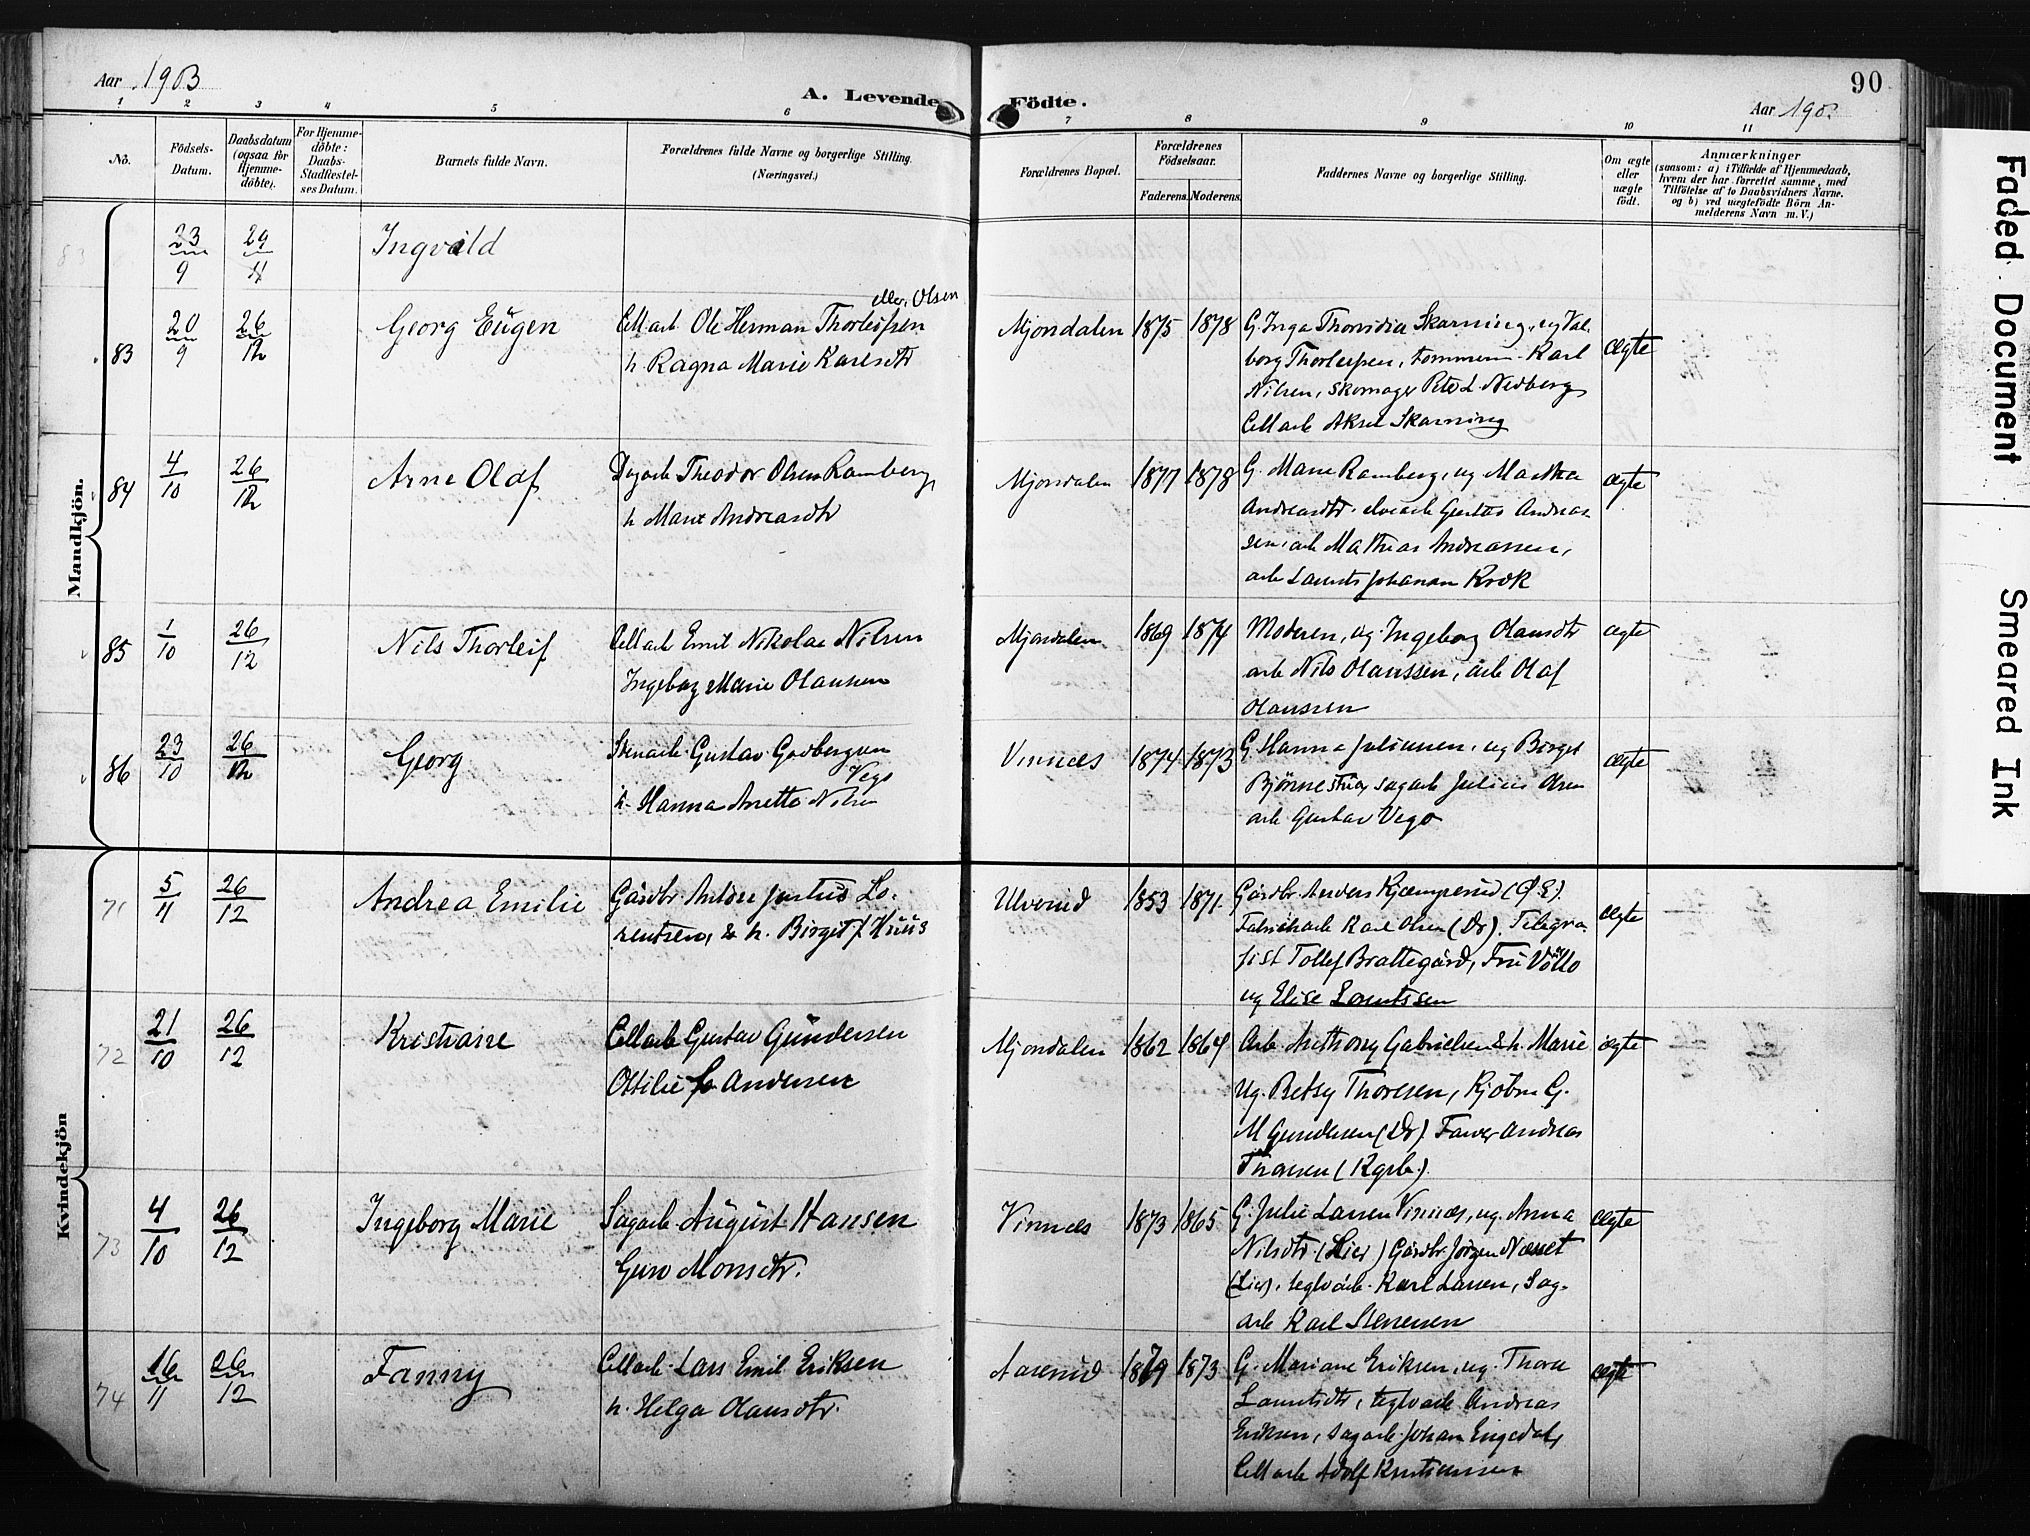 Aar 1903
A. Levende Födte.
90
Aar 190
1 2 3 4 5 6 7 8 9 10 11
No.
Födsels-
Datum.
Daabsdatum
(ogsaa for
Hjemme-
döbte).
For Hjemme-
döbte:
Daabs-
Stadfæstel-
ses Datum.
Barnets fulde Navn.
Forældrenes fulde Navne og borgerlige Stilling.
(Næringsvei.)
Forældrenes Bopæl.
Forældrenes
Födselsaar.
Faderens. Moderens.
Faddernes Navne og borgerlige Stilling.
Om ægte
eller
uægte
født.
Anmærkninger
(saasom: a) i Tilfælde af Hjemmedaab,
hvem der har forrettet samme, med
Tilföielse af to Daabsvidners Navne.
og b) ved uægtefödte Börn An-
melderens Navn m. V.)
Mandkjön.
83 23/9 29/11 Ingvald
83 20/9 26/12 Georg Eugen
eller Olsen
Cellarb Ole Herman Thorleifsen
h. Ragna Marie Karlsdtr
Mjondalen 1875 1878
G. Inga Skarning, ug Val
borg Thorleifsen, tømmerm. Karl
Nilsen, Skomager Nedberg
Cellarb Aksel Skarning
ægte
84 4/10 26/12 Arne Olaf
Dagarb Theodor Olsen Ramberg,
h Marie Andreasdtr
Mjondalen 1877 1878
G. Marie Ramberg, ug Martha
Andreasdtr. Gustav Andreas
sen, arb Mathias Andreassen,
arb Johansen Krok
ægte
85 1/10 26/12 Nils Thorleif
Cellarb Emil Nikolai Nilsen
Ingeborg Marie Olausen
Mjondalen 1869 1874
Moderen, ug. Ingeborg Olausdtr
arb Nils Olaussen, arb Olaf
Olaussen
ægte
86 23/10 26/12 Georg
Stenarb. Gustav
Vego
h. Hanna Anette Nilsen
Vinnæs 1874 1873
G. Hanna Juliussen, ug Birget
sagarb Julius Olsen
arb Gustav Vego
ægte
Kvindekjön
71 5/11 26/12 Andrea Emilie
Gårdbr. Anton Justus Lo-
rentsen, & h. Birget J Huus
Ulverud 1853 1871
Gårdbr. Anders Kjæmperud (Ø.E).
Fabrikarb Karl Olsen (Dr). Telegra
fist Tollef Brattegård, Fru Vollo
ug Elise Lorentssen
ægte
72 21/10 26/12 Kristiane
Cellarb Gustav Gundersen
Ottilie Andersen
Mjondalen 1862 1864
Arb Anthony Gabrielsen & h. Marie
ug. Betsy Thoresen, Kjøbm G.
M Gundersen (Dr). Farver Andreas
Thoresen (Kgsb.)
ægte
73 4/10 26/12 Ingeborg Marie
Sagarb August Hansen
Guro Monsdtr.
Vinnæs 1873 1865
G. Julie Larsen Vinnæs, ug. Anna
Nilsdtr. (Lier) Gårdbr. Jørgen Næsset
(Lier), teglvarb. Karl Larsen, Sag-
arb Karl Stenersen
ægte
74 16/11 26/12 Fanny
Cellarb. Lars Emil Eriksen
h. Helga Olausdtr.
Aaserud 1879 1873
G. Mariane Eriksen, ug. Thora
Laurntsdtr, teglvarb Andreas
Eriksen, sagarb. Johan Engedal,
Cellarb Adolf Kristiansen
ægte
Faded Document
Smeared Ink